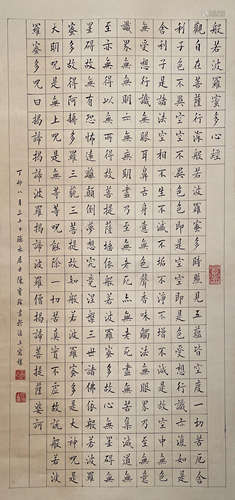 般若波羅蜜多心經
觀自在菩薩行深般若波羅蜜多時照見五蘊皆空度一切苦厄舍
利子色不異空空不異色色即是空空即是色受想行識亦復如是
舍利子是諸法空相不生不滅不垢不淨不增不減是故空中無色
無受想行識無眼耳鼻舌身意無色聲香味觸法無眼界乃至無意
識界無無明亦無無明盡乃至無老死亦無老死盡無苦集滅道無
智亦無得以無所得故菩提薩埵依般若波羅蜜多故心無罣礙無
罣礙故無有恐怖遠離顛倒夢想究竟涅槃三世諸佛依般若波羅
蜜多故得阿耨多羅三藐三菩提故知般若波羅蜜多是大神呪是
大明呪是無上呪是無等等呪能除一切苦真實不虛故說般若波
羅蜜多呪曰揭諦揭諦波羅揭諦波羅僧揭諦菩提薩婆訶
丁卯 月三十日 居士陳 書於海上寓樓